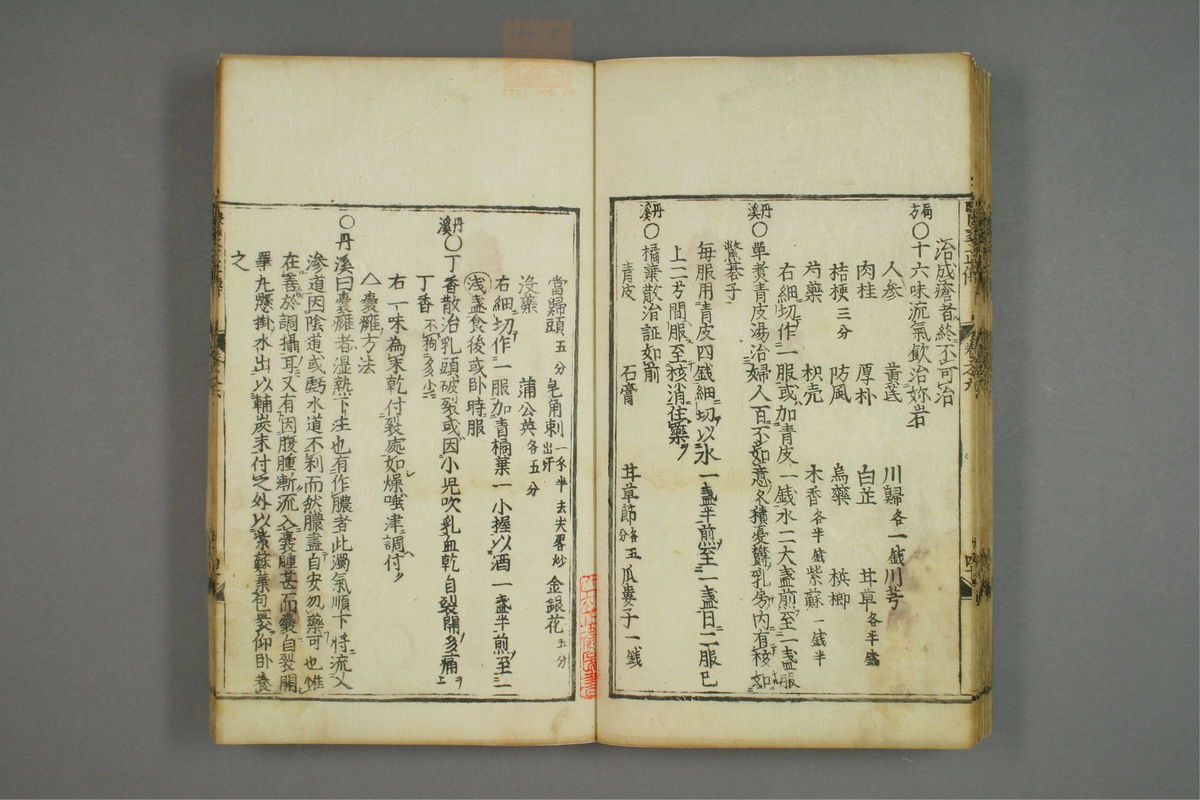 治成瘡者終不可治
局方〇十六味流氣飲治妳岩
人参 黄芪 川歸各一錢 川芎
肉桂 厚朴 白芷 甘草各半錢
桔梗三分 防風 烏藥 梹榔
芍藥 枳壳 木香各半錢 紫蘇一錢半
右細切作一服或加青皮一錢水二大盞煎至一盞服
丹溪〇單煑青皮湯治婦人百不如意久積憂欝乳房内有核如
鱉棊子
毎服用青皮四錢細切以水一盞半煎至一盞日二服巳
上二方間服至核消住藥
丹溪〇橘葉散治証如前
青皮 石膏 甘草節各五分 瓜蔞子一錢
當歸頭五分 皂角刺一錢半去尖畧炒出汗 金銀花五分
没藥 蒲公英各五分
右細切作一服加青橘葉一小握以酒一盞半煎至一
浅盞食後或卧時服
丹溪〇丁香散治乳頭破裂或因小児吹乳血乾自裂開多痛
丁香不拘多少
右一味為末乾付裂處如燥唾津調付
囊癰方法
〇丹溪曰囊癰者湿熱下注也有作膿者此濁氣順下将流入
渗道因陰道或虧水道不利而然膿盡自安勿藥可也惟
在善於調攝耳又有因腹腫漸流入囊腫甚而囊自裂開
睾丸懸掛水出以麩炭末付之外以紫蘇葉包裹仰卧養
之